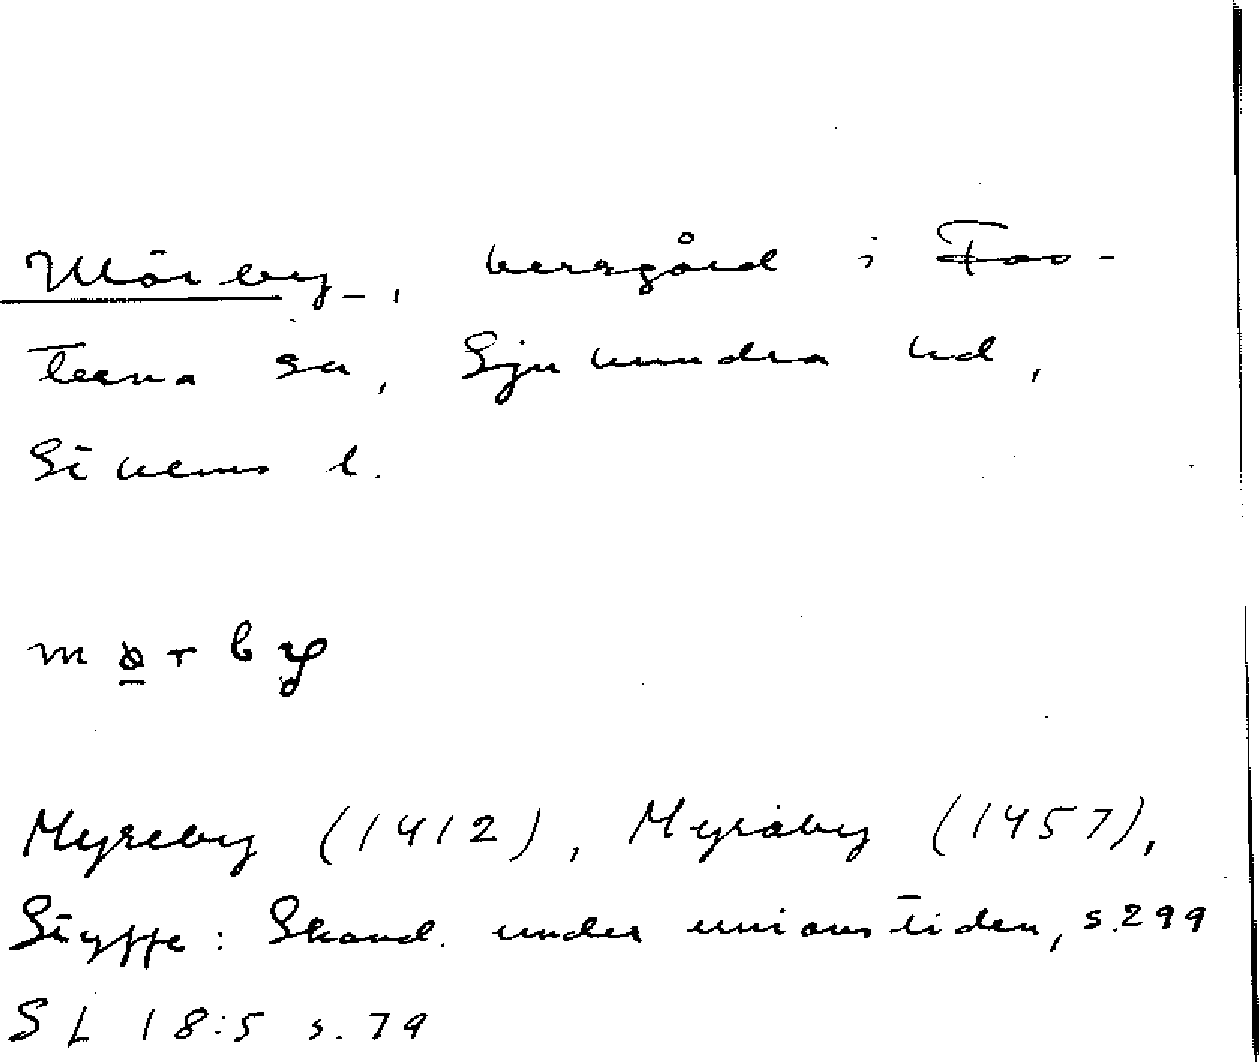 Mörby, herrgård i Fas-
terna sn, Sjuhundra hd,
Sthlms l.
mørby
Myreby (1412), Myraby (1457),
Styffe: Skand. under unionstiden, s. 299
SL 18:5 s. 79